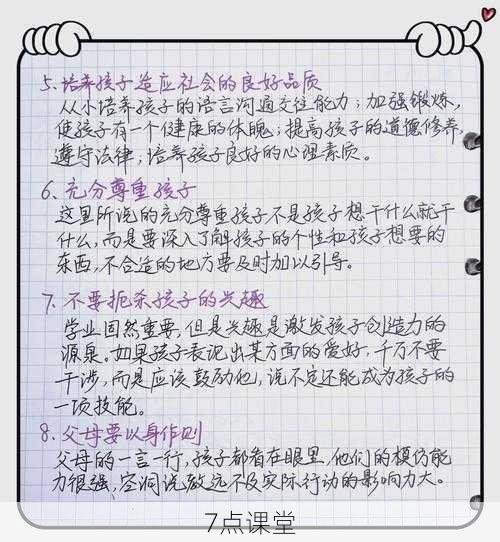 5、培养孩子适应社会的良好品质
从小培养孩子的语言沟通交往能力；加强锻炼，
使孩子有一个健康的体魄；提高孩子的道德修养，
遵守法律；培养孩子良好的心理素质。
6、充分尊重孩子
这里所说的充分尊重孩子不是孩子想干什么就干
什么，而是要深入了解孩子的个性和孩子想要的
东西，不合适的地方要及时加以引导。
7、不要扼杀孩子的兴趣
学业固然重要，但是兴趣是激发孩子创造力的
源泉。如果孩子表现出某方面的爱好，千万不要
干涉，而是应该鼓励他，说不定还能成为孩子的
一项技能。
8、父母要以身作则
父母的一言一行，孩子都看在眼里，他们的模仿能
力很强，空洞说教远不及实际行动的影响力大。
7点课堂